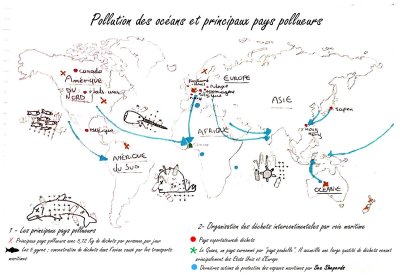 Pollution des océans et principaux pays pollueurs
Canada
AMÉRIQUE
DU NORD
États unis
Mexique
AMÉRIQUE
DU SUD
EUROPE
AFRIQUE
ASIE
Japon
OCÉANIE
1 - Les principaux pays pollueurs
X Principaux pays pollueurs avec 5,12 Kg de déchets par personne par jour
Les 5 gyres : concentration de déchets dans l'océan causé par les transports
maritimes
2- Organisation des déchets intercontinentales par voie maritime
Pays exportateurs de déchets
Le Ghana, un pays surnommé par "pays poubelle". Il accueille une large quantité de déchets venant
principalement des Etats Unis et d'Europe
Dernières actions de protection des espaces maritimes par Sea Shepherd